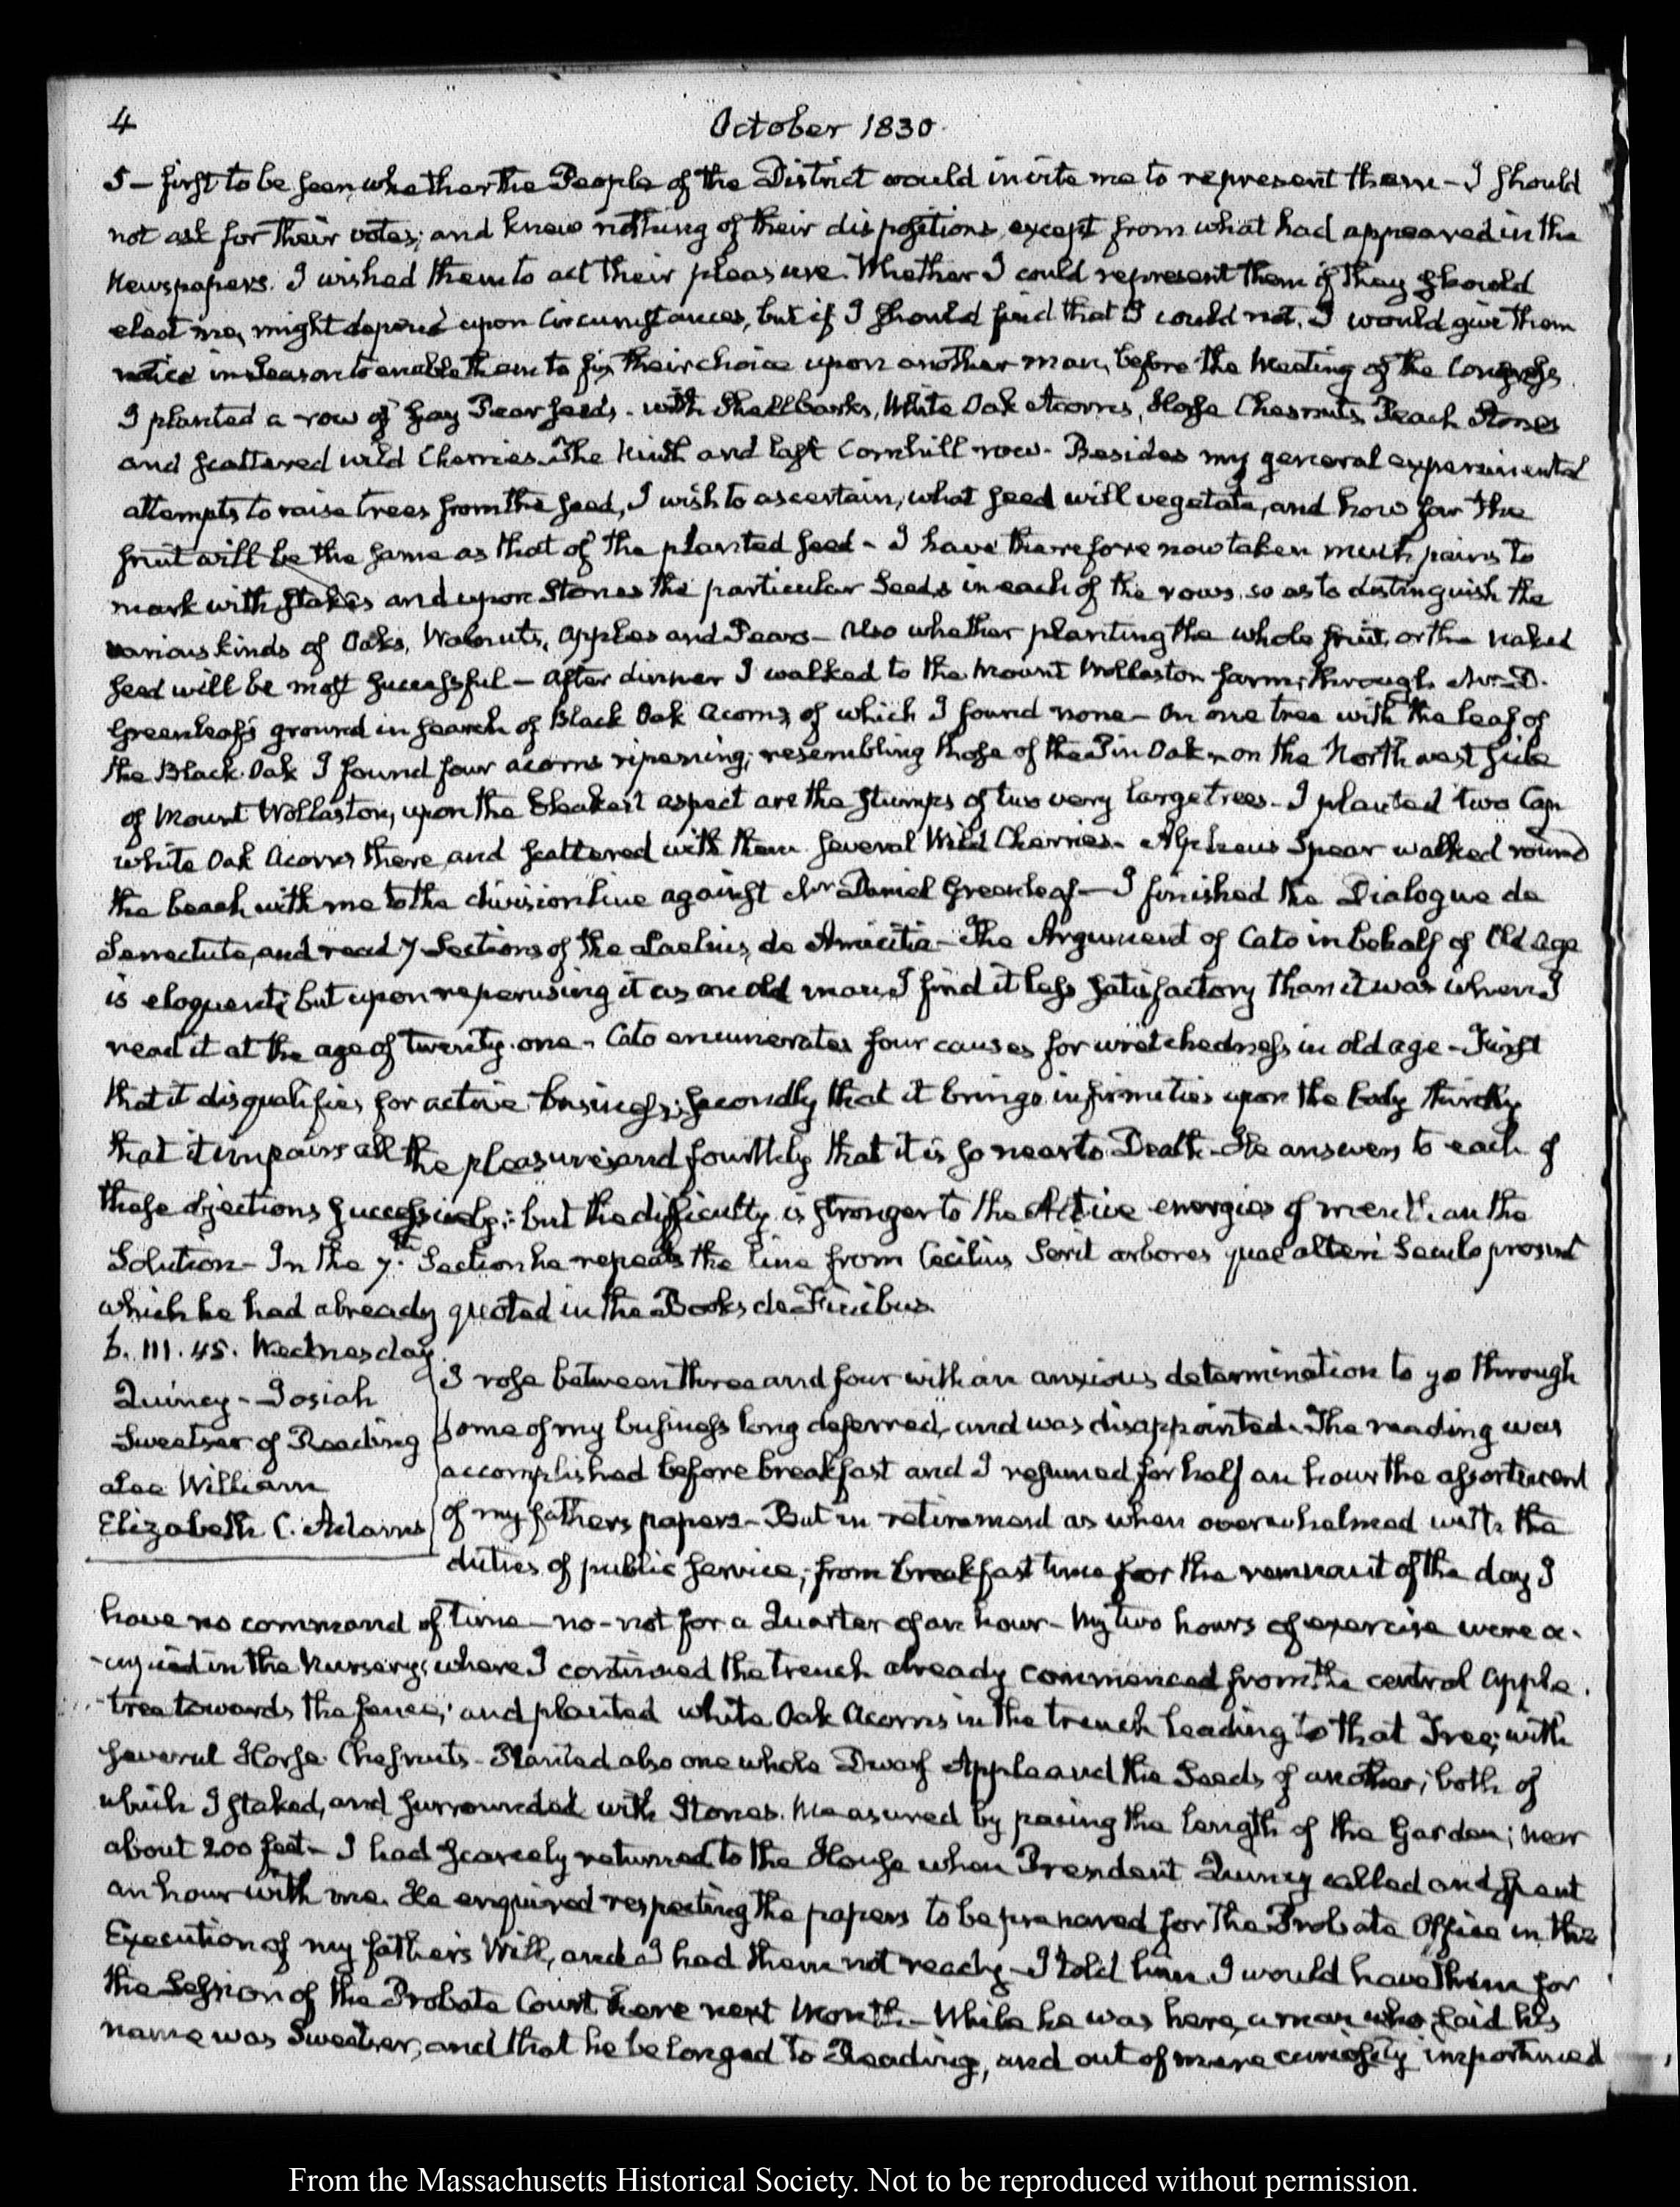 4
October 1830.
5 — first to be seen, whether the People of the District would invite me to represent them – I should
not ask for their votes; and knew nothing of their dispositions, except from what had appeared in the
Newspapers. I wished them to act their pleasure. Whether I could represent them if they should
elect me, might depend upon Circumstances, but if I should find that I could not, I would give them
notice in Season to enable them to fix their choice upon another man, before the Meeting of the Congress.
I planted a row of Gay Pear seeds – with Shellbarks, White Oak Acorns, Horse Chesnuts, Peach Stones
and scattered wild Cherries. The Ninth and last Cornhill row. Besides my general experimental
attempts to raise trees from the seed, I wish to ascertain, what seed will vegetate, and how far the
fruit will be the same as that of the planted seed – I have therefore now taken much pains to
mark with stakes and upon Stones the particular Seeds in each of the rows, so as to distinguish the
various kinds of Oaks, Walnuts, Apples and Pears – Also whether planting the whole fruit, or the naked
seed will be most successful – After dinner I walked to the Mount Wollaston farm, through Mr. D.
Greenleaf's ground in search of Black Oak Acorns, of which I found none – On one tree with the leaf of
the Black Oak I found four acorns ripening; resembling those of the Pin Oak – on the North west side
of Mount Wollaston, upon the bleakest aspect are the stumps of two very large trees – I planted two
white Oak Acorns there, and scattered with them several Wild Cherries – Alpheus Spear walked round
the beach with me to the division line against Mr Daniel Greenleaf — I finished the Dialogue de
Senectute, and read 7 Sections of the Laelius, de Amicitia – The Argument of Cato in behalf of Old Age
is eloquent; but upon reperusing it as an old man, I find it less satisfactory than it was when I
read it at the age of twenty-one – Cato enumerates four causes for wretchedness in old age – First
that it disqualifies for active business; secondly that it brings infirmities upon the body thirdly
that it impairs all the pleasures and fourthly that it is so near to Death – He answers to each of
these objections successively; but the difficulty is stronger to the Active energies of men than the
Solution – In the 7th Section he repeats the line from Cecilius Serit arbores quae alteri Seculo prosint
which he had already quoted in the Books de Finibus.
6. III. 45. Wednesday.
Quincy – Josiah
Sweetser of Reading
Lee William
Elizabeth C. Adams
I rose between three and four with an anxious determination to go through
some of my business long deferred, and was disappointed. The reading was
accomplished before breakfast and I resumed for half an hour the assortment
of my fathers papers – But in retirement as when overwhelmed with the
duties of public service; from breakfast time for the remnant of the day I
have no command of time – no – not for a Quarter of an hour – My two hours of exercise were
in the Nursery; where I continued the trench already commenced from the central apple
tree towards the fence; and planted white Oak Acorns in the trench leading to that Tree; with
several Horse Chesnuts – Planted also one whole Dwarf Apple and the Seeds of another; both of
which I staked, and surrounded with Stones. Measured by pacing the length of the Garden; near
about 200 feet – I had scarcely returned to the House when President Quincy called and spent
an hour with me. He enquired respecting the papers to be prepared for the Probate Office in the
Execution of my father's Will, and I had them not ready – I told him I would have them for
the Session of the Probate Court here next Month – While he was here, a man who said his
name was Sweetser, and that he belonged to Reading, and out of mere curiosity importuned
From the Massachusetts Historical Society. Not to be reproduced without permission.